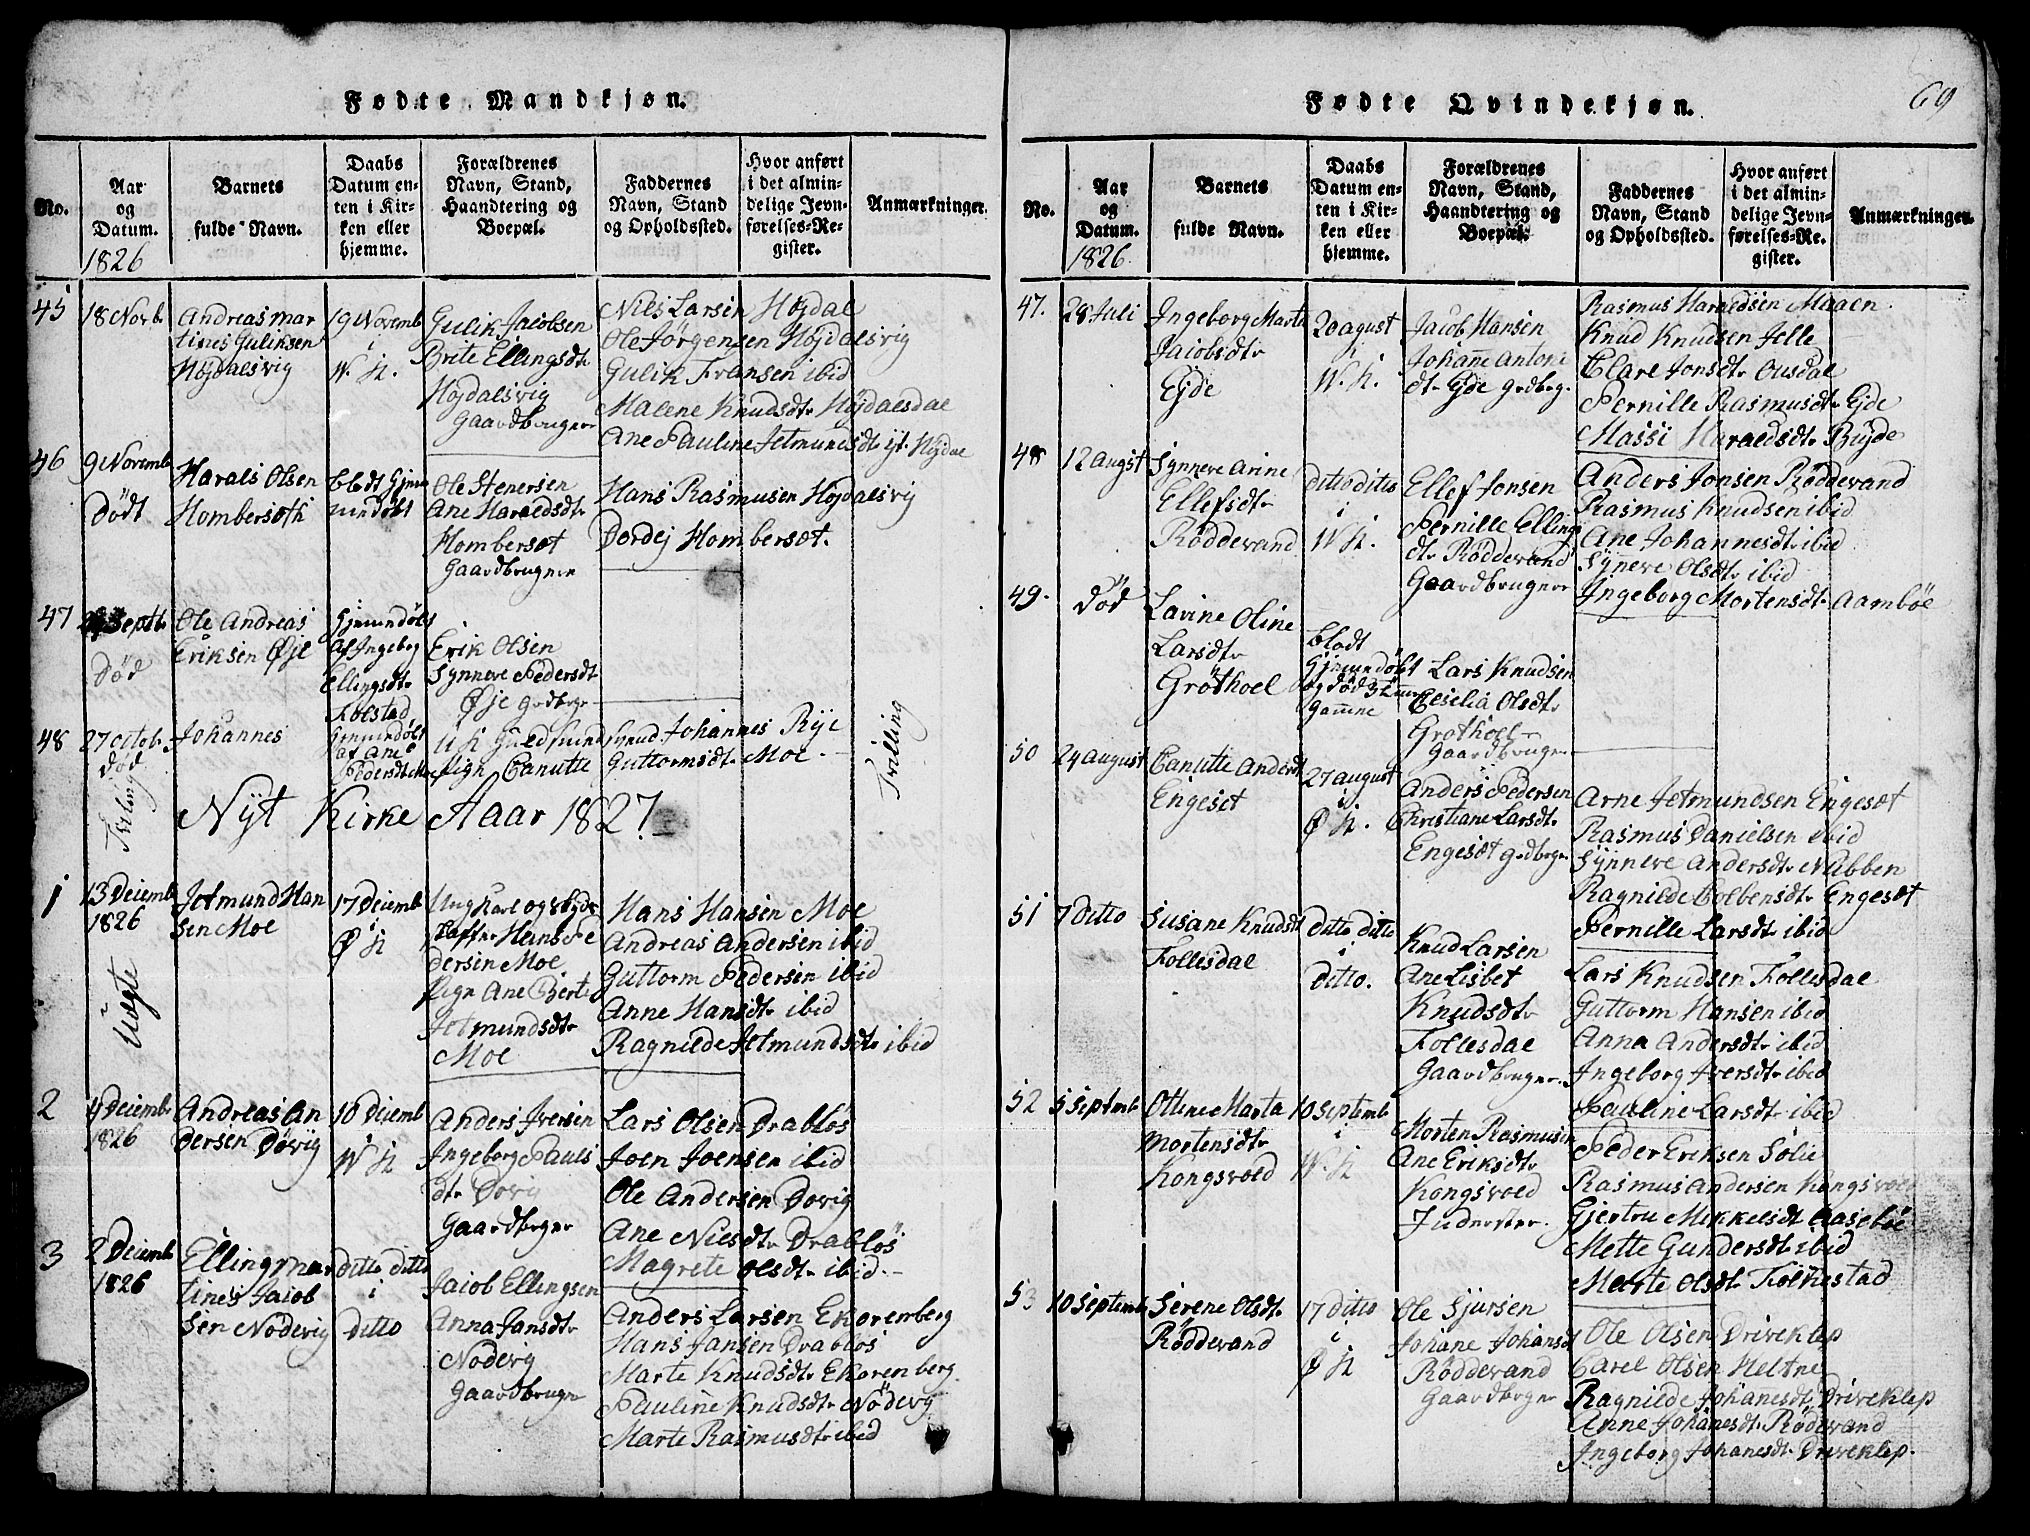 Fødte Mandkjøn.
No.
Aar
og
Datum.
1826
Barnets
fulde Navn.
Daabs
Datum en-
ten i Kir-
ken eller
hjemme.
Forældrenes
Navn, Stand,
Haandtering og
Boepæl.
Faddernes
Navn, Stand
og Opholdssted.
Hvor anført
i det almin-
delige Jevn-
førelses-Re-
gister.
Anmærkninger.
45
18 Novb.
Andreas Mar
tines Guliksen
Höjdalsvig
19 Novemb
i
W. K.
Gulik Jacobsen
Brite Ellingsdtr
Höjdalsvig
Gaardbruger
Niels Larsen Höjdal
Ole Jörgensen Höjdalsvig
Gulik Fransen ibid
Malene Knudsdtr Höjdalsdal
Ane Pauline Jetmundsdtr yt. Höjdal
46
9 Novemb
Födt
Harals Olsen
Hombersæth
Ole Stenersen
Ane Haraldsdtr
Hombersæt
Gaardbruger
Hans Rasmusen Höjdalsvig
Dordej Hombersæt.
47
Septr
Död
Ole Andreas
Eriksen Øje
Hjemmedöbt
af Ingeborg
Ellingsdtr
Folstad
Erik Olsen
Synneve Pedersdt
Øje grdbrgr
48
27 octob.
död
Johannes
Hjemmedöbt
af Ane
Pedersdt Moe
Pign Canutte
Knud Johannes Rye
Guttormsdtr Moe
Trilling
Nyt Kirke Aaar 1827
1
13 Decemb
1826
Uægte
Jetmund Han
sen Moe
17 Decemb
Ø K
Ungkarl og
Hans Pe
dersen Moe
Pign Ane Berte
Jetmundsdtr
Moe
Hans Hansen Moe
Andreas Andersen ibid
Guttorm Pedersen ibid
Anne Hansdtr ibid
Ragnilde Jetmundsdtr ibid
2
4 Decemb
1826
Andreas An
dersen Dövig
10 Decemb
i
W K
Anders Iversen
Ingeborg Pauls
dtr Dovig
Gaardbrger
Lars Olsen Drablös
Joen Joensen ibid
Ole Andersen Dovig
Ane Nielsdtr Drablös
Magrete Olsdtr ibid
3
2 Decemb
1826
Elling Mar
tines Jacob
sen Nödevig
Ditto Ditto
i
Ditto
Jacob Ellingsen
Anna Jansdtr
Nodevig
Gaardbruger
Anders Larsen Ekorenberg
Hans Jansen Drablös
Marte Knudsdtr Ekorenberg.
Pauline Knudsdtr Nödevg
Marte Rasmusdtr ibid
Fødte Qvindekjøn.
69
No.
Aar
og
Datum.
1826.
Barnets
fulde Navn.
Daabs
Datum en-
ten i Kir-
ken eller
hjemme.
Forældrenes
Navn, Stand,
Haandtering og
Boepæl.
Faddernes
Navn, Stand
og Opholdssted.
Hvor anført
i det almin-
delige Jevn-
førelses-Re.
gister.
Anmærkninger.
47.
28 Juli
Ingeborg Marta
Jacobsdtr
Ejde
20 august
i
W. K.
Jacob Hansen
Johanne Antone
dtr Ejde grdbrg.
Rasmus Haraldsen Maaen
Knud Knudsen Jelle
Clare Jonsdtr Ousdal
Pernille Rasmusdtr Ejde
Massi Haraldsdtr Bugde
48
12 augst
Synneve Anne
Ellefsdtr
Röddevand
ditto ditto
i
W K.
Ellef Jonsen
Pernille Ellings
dtr Röddevand
Gaardbruger
Anders Jonsen Röddevand
Rasmus Knudsen ibid
Ane Johannesdtr ibid
Syneve Olsdtr ibid
Ingeborg Mortensdtr Aamböe
49.
död
Lavine Oline
Larsdtr
Gröthoel
blodt
Hjemmedöbt
og död 3
gamne
Lars Knudsen
Cecilia Olsdtr
Grothoel
Gaardbruger
50
24 august
Canutte Andersdt
Engeset
27 august
i
Ø K.
Anders Pedersen
Christiane Larsdtr
Engesæt grdbrgr
Arne Jetmundsen Engesæt
Rasmus Danielsen ibid
Synneve Andersdtr Nubben
Ragnilde Colbensdtr Engesæt
Pernille Larsdtr ibid
51
7 Ditto
Susane Knudsdt
Follesdal
Ditto Ditto
i
Ditto.
Knud Larsen
Ane Lisbet
Knudsdtr
Follesdal
Gaardbruger.
Lars Knudsen Follesdal
Guttorm Hansen ibid
Anna Andersdtr ibid
Ingeborg Iversdtr ibid
Pauline Larsdtr ibid
52
5 Septemb
Ottene Marta
Mortensdtr
Kongsvold
10 Septemb
i
W. K
Morten Rasmusen
Ane Eriksdtr
Kongsvold
Inderster.
Peder Eriksen Solie
Rasmus Andersen Kongsvold
Gjertru Mikkelsdt Aaseböe
Mette Gundersdtr ibid
Marte Olsdt Folkestad
53
10 Septemb
Serene Olsdtr
Röddevand
17 Ditto
i
Ø K
Ole Sjursen
Johane Johansdt
Röddevand
Gaardbrger
Ole Olsen Driveklep
Carel Olsen Heltne
Ragnilde Johanesdt. Driveklep
Anne Johanesdt. Rödevand
Ingeborg Johanesdt. Driveklep.